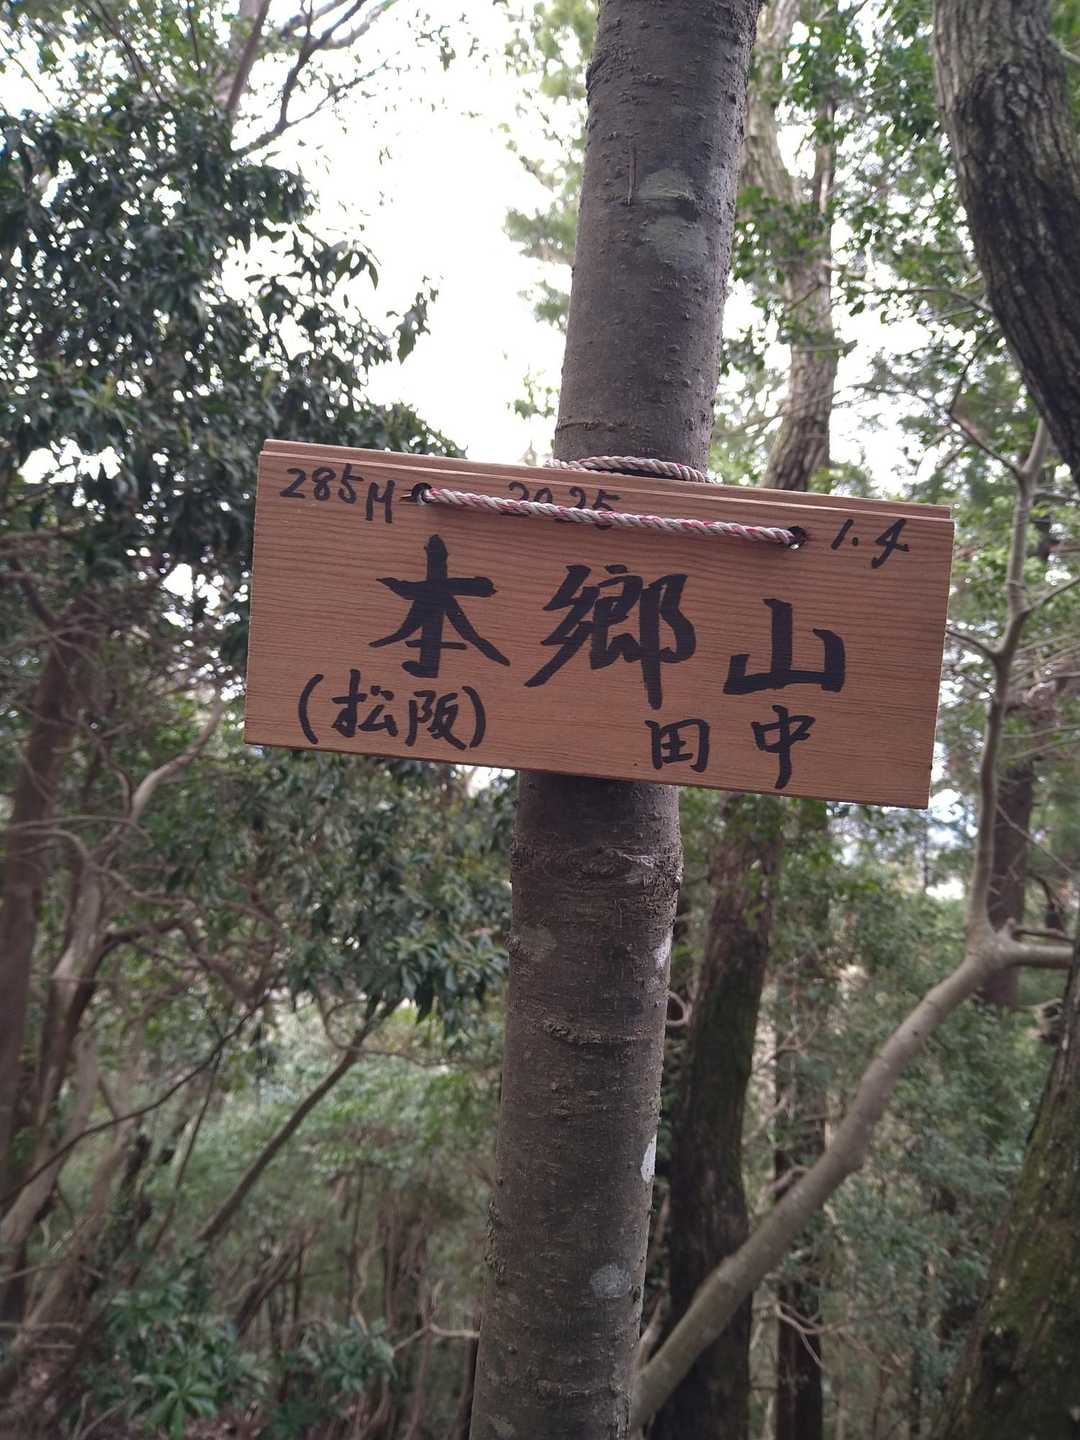 285M 2025 1.4
本郷山
(松阪) 田中